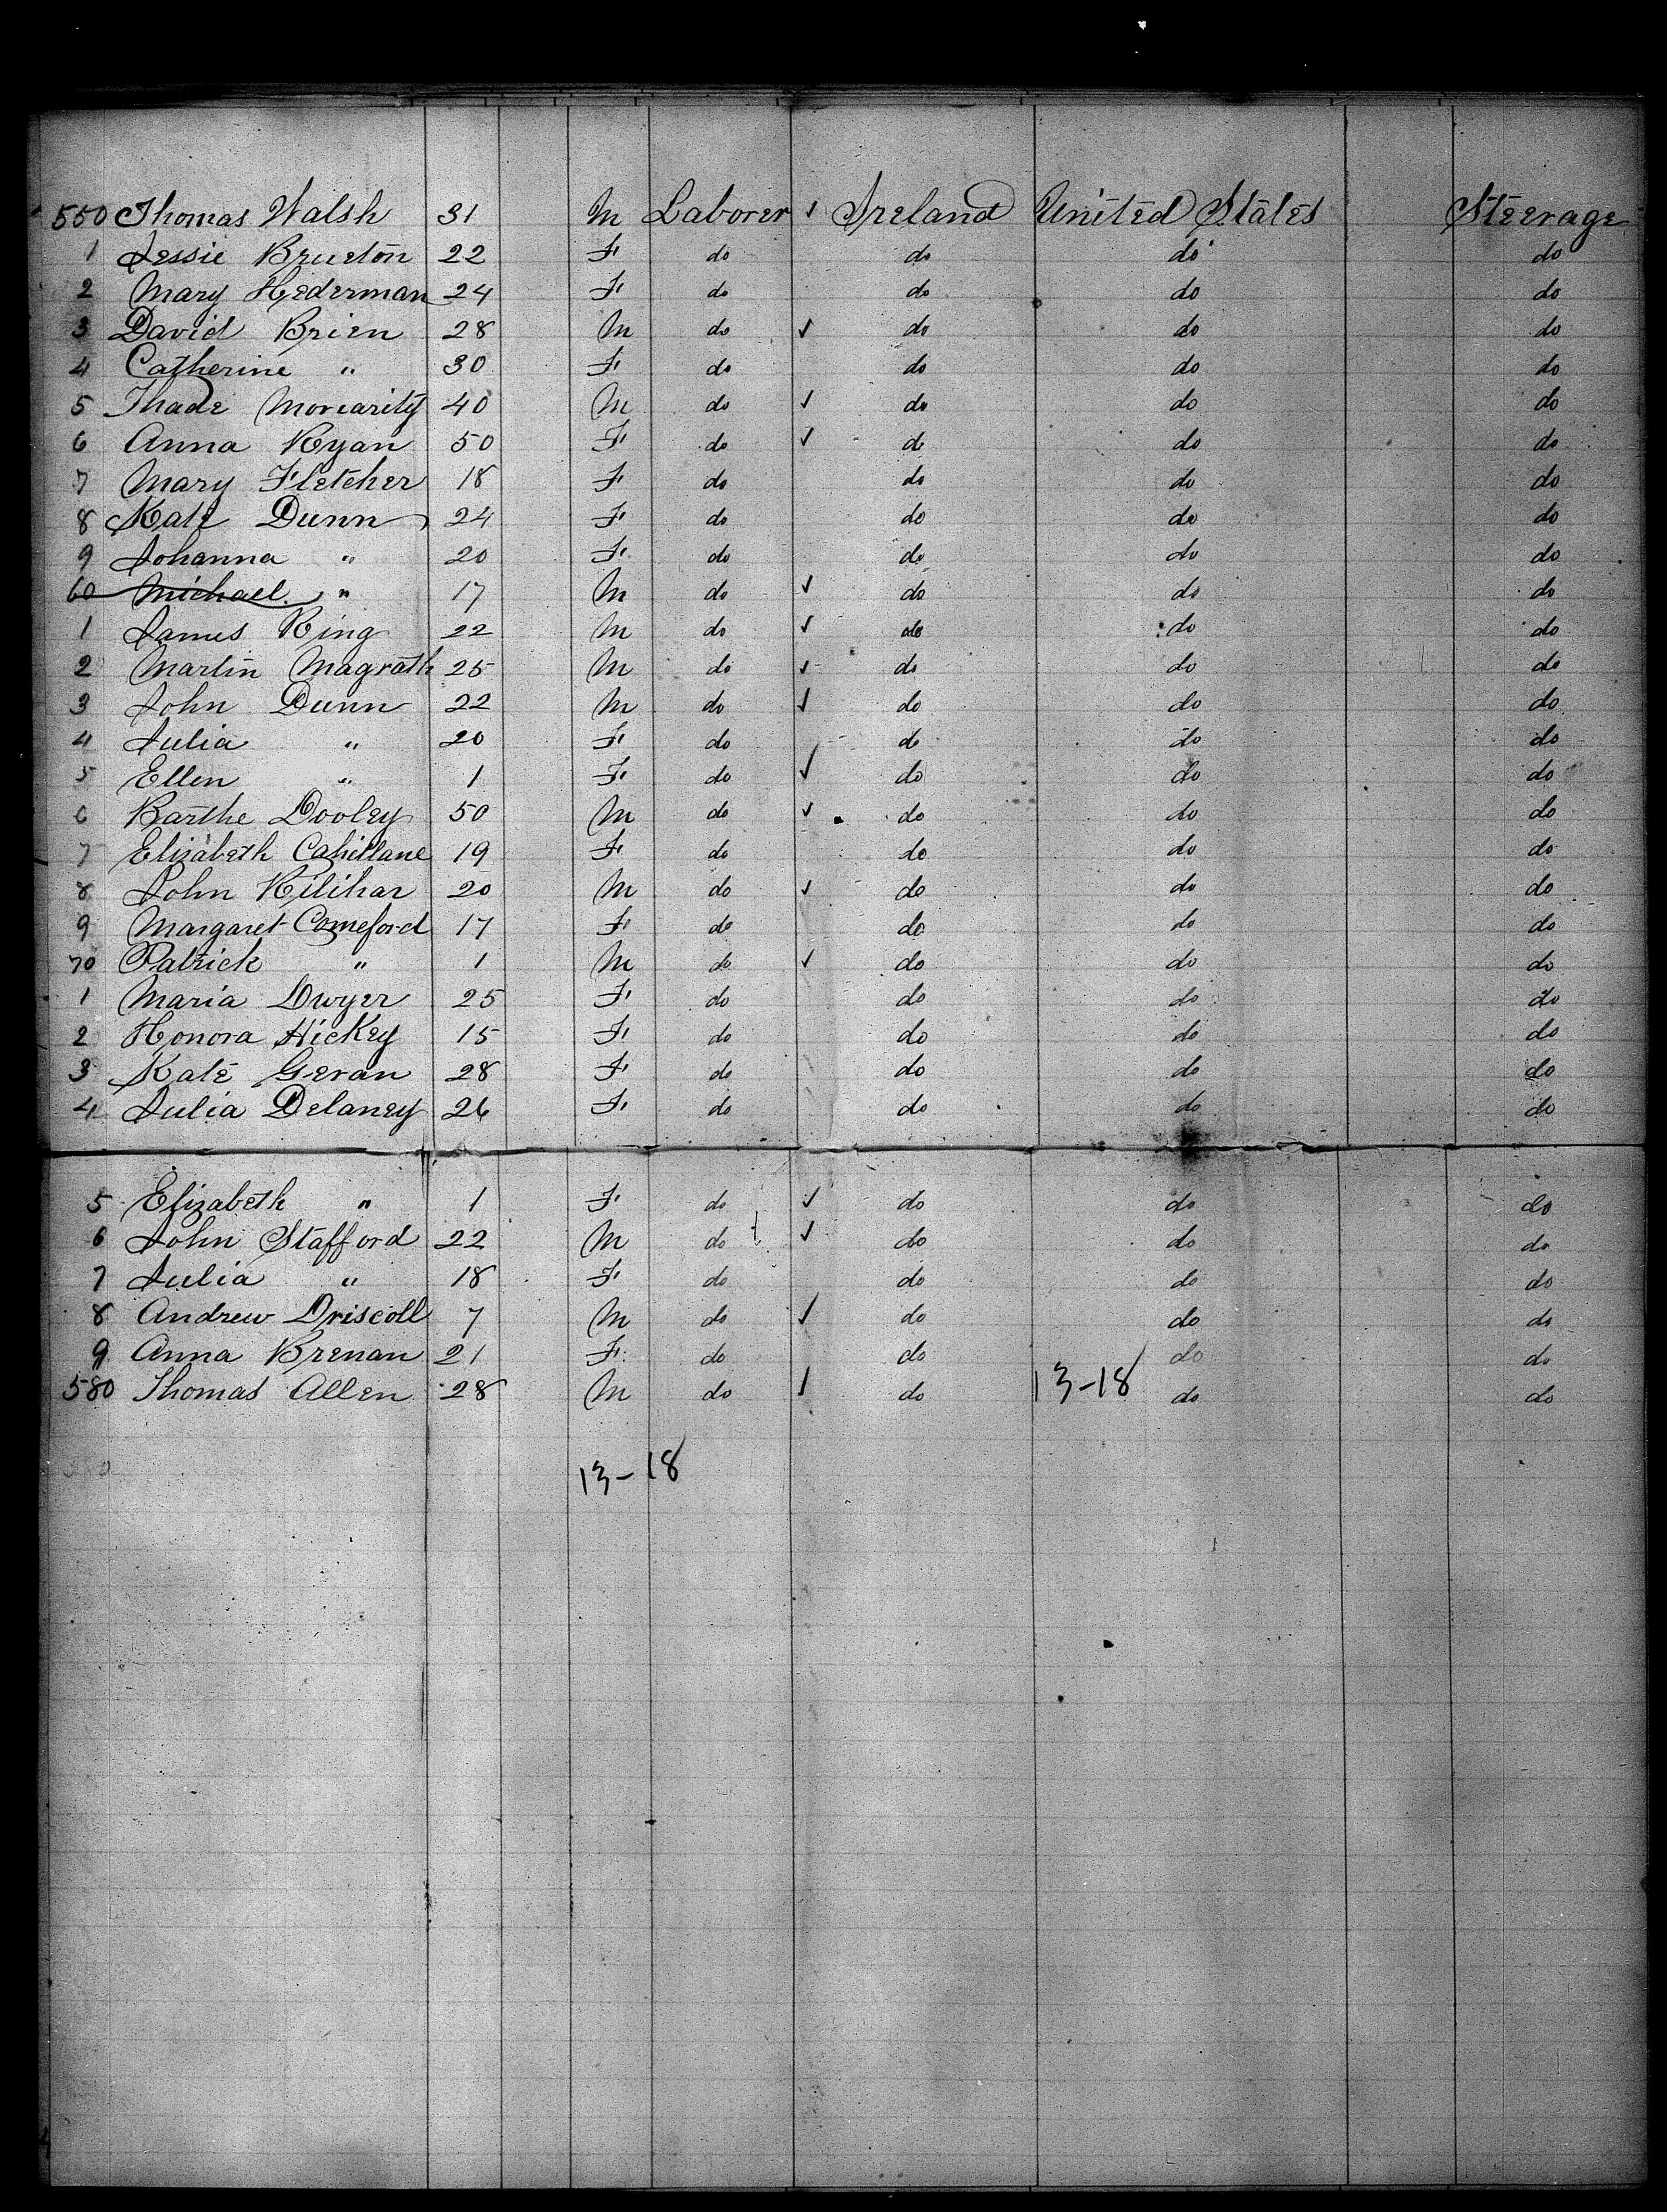 550 Thomas Walsh 31 M Laborer ✓ Ireland United States Steerage
1 Jessie Brueton 22 F do do do do
2 Mary Hederman 24 F do do do do
3 David Brien 28 M do ✓ do do do
4 Catherine " 30 F do do do do
5 Thade Moriarity 40 M do ✓ do do do
6 Anna Ryan 50 F do ✓ do do do
7 Mary Fletcher 18 F do do do do
8 Kate Dunn 24 F do do do do
9 Johanna " 20 F do do do do
60 Michael " 17 M do ✓ do do do
1 James King 22 M do ✓ do do do
2 Martin Magrath 25 M do ✓ do do do
3 John Dunn 22 M do ✓ do do do
4 Julia " 20 F do do do do
5 Ellen " 1 F do ✓ do do do
6 Barthe Dooley 50 M do ✓ do do do
7 Elizabeth Cahillane 19 F do do do do
8 John Kilihar 20 M do ✓ do do do
9 Margaret Comeford 17 F do do do do
70 Patrick " 1 M do ✓ do do do
1 Maria Dwyer 25 F do do do do
2 Honora Hickey 15 F do do do do
3 Kate Geran 28 F do do do do
4 Julia Delaney 26 F do do do do
5 Elizabeth " 1 F do ✓ do do do
6 John Stafford 22 M do ✓ do do do
7 Julia " 18 F do do do do
8 Andrew Driscoll 7 M do ✓ do do do
9 Anna Brenan 21 F do do do do
580 Thomas Allen 28 M do ✓ do 13-18 do do
13-18